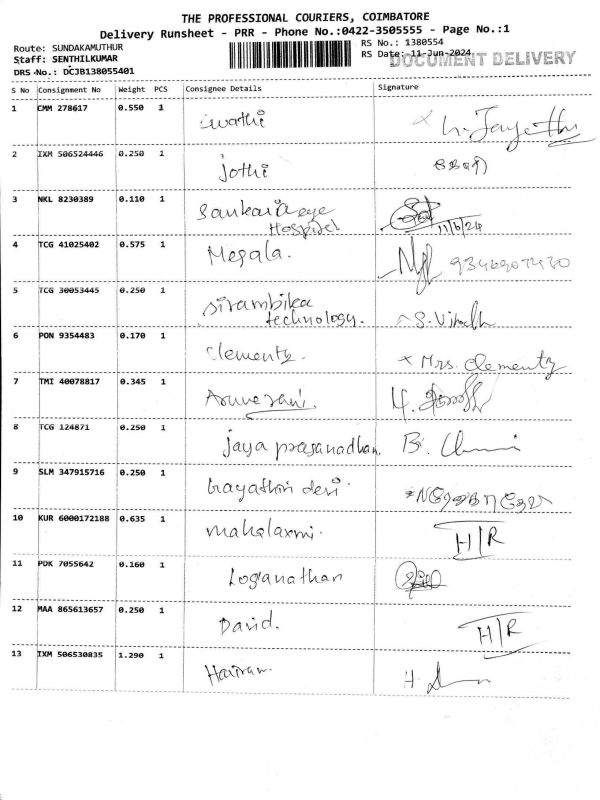 THE PROFESSIONAL COURIERS, COIMBATORE
Delivery Runsheet - PRR - Phone No.:0422-3505555 - Page No.:1
Route: SUNDAKAMUTHUR
RS No.: 1380554
Staff: SENTHILKUMAR
RS Date: 11-Jun-2024
DOCUMENT DELIVERY
DRS No.: DCJB138055401
S No Consignment No Weight PCS Consignee Details Signature
1 CMM 278617 0.550 1 swathi
2 IXM 506524446 0.250 1 jothi
3 NKL 8230389 0.110 1 Sankara eye
Hospital 11/6/24
4 TCG 41025402 0.575 1 Megala.
5 TCG 30053445 0.250 1 sirambika
technology.
6 PON 9354483 0.170 1 Clementz. x Mrs. Clementz
7 TMI 40078817 0.345 1
8 TCG 124871 0.250 1 jaya prasanadhan
9 SLM 347915716 0.250 1 Gayathri devi.
10 KUR 6000172188 0.635 1 mahalaxmi. H/R
11 PDK 7055642 0.160 1 Loganathan
12 MAA 865613657 0.250 1 David. H/R
13 IXM 506530835 1.290 1